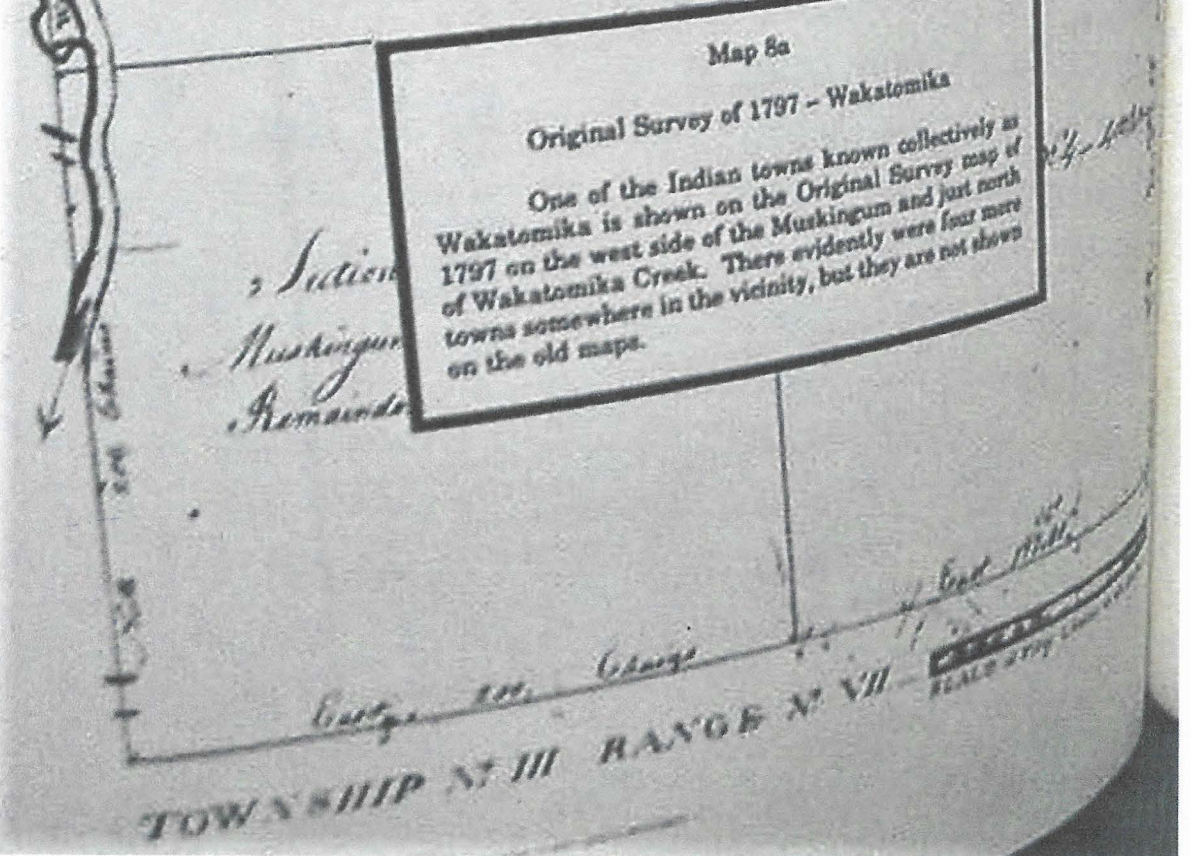 Map 8a
Original Survey of 1797 - Wakatomika
One of the Indian towns known collectively as
Wakatomika is shown on the Original Survey map of
1797 on the west side of the Muskingum and just north
of Wakatomika Creek. There evidently were four more
towns somewhere in the vicinity, but they are not shown
on the old maps.
Section
Muskingum
Remainde
Chains
East
Chains
East
TOWNSHIP Nº III RANGE Nº VII
SCALE